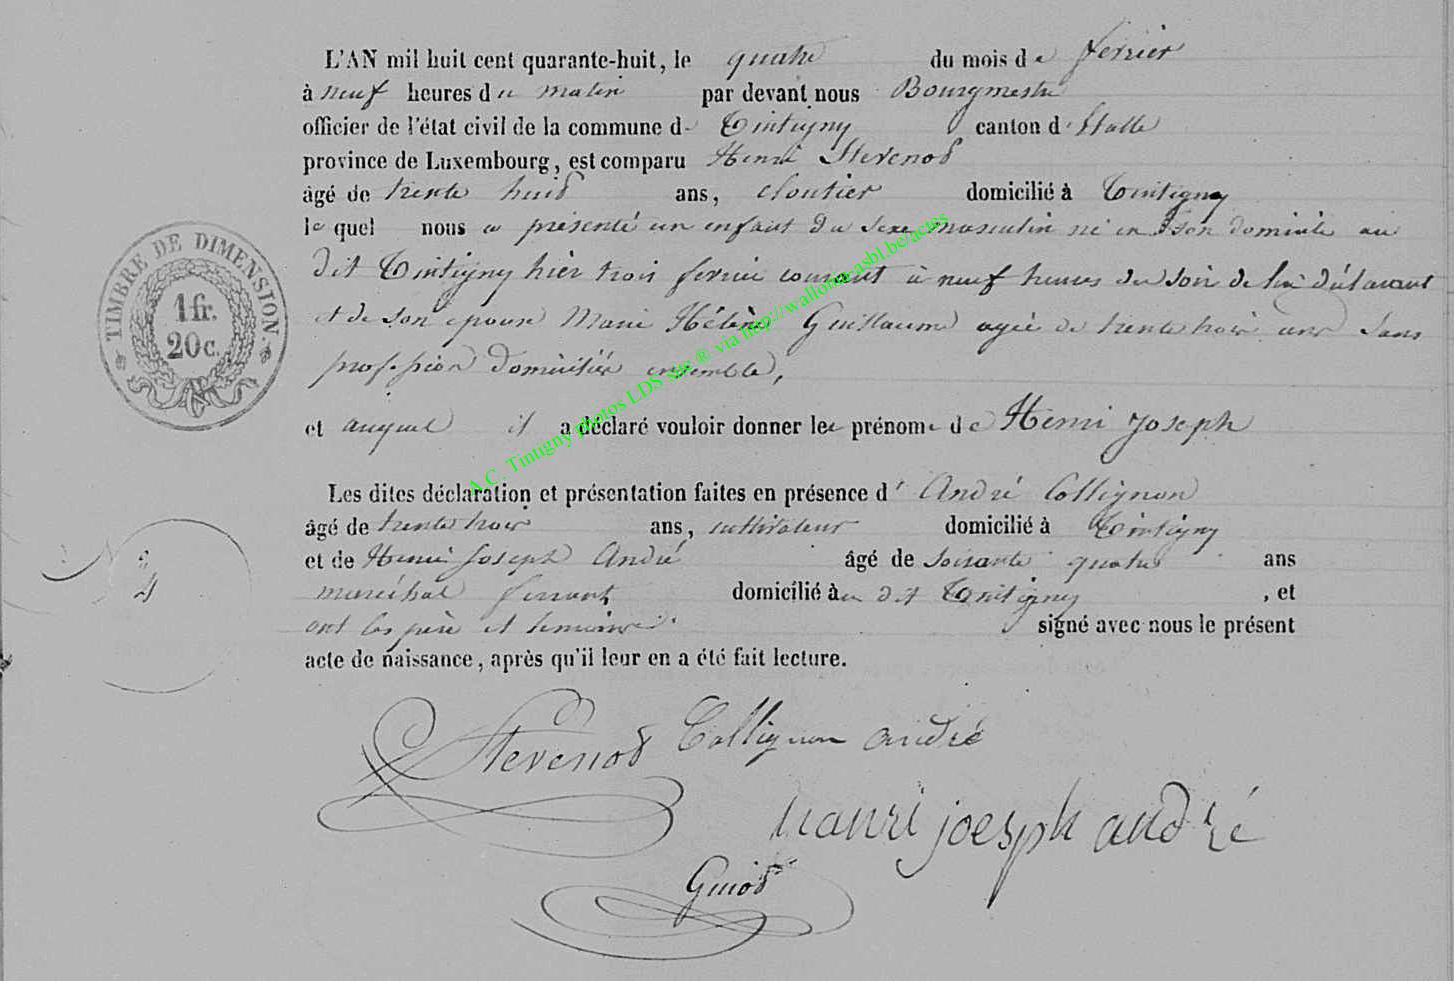 L'AN mil huit cent quarante-huit, le quatre du mois de fevrier
à neuf heures du matin par devant nous Bourgmestre
officier de l'état civil de la commune de Tintigny canton d'Etalle
province de Luxembourg, est comparu Henri Stevenot
âgé de trente huit ans, cloutier domicilié à Tintigny
le quel nous a présenté un enfant du sexe masculin né en son domicile au
dit Tintigny hier trois fevrier courant à neuf heures du soir de lui déclarant
et de son épouse Marie Hélène Guillaume agée de trente trois ans sans
profession domiciliés ensemble,
et auquel il a déclaré vouloir donner les prénoms de Henri Joseph
Les dites déclaration et présentation faites en présence d'André Collignon
âgé de trente trois ans, cultivateur domicilié à Tintigny
et de Henri Joseph André âgé de soixante quatre ans
maréchal ferrant domicilié à au dit Tintigny, et
ont les père et témoins signé avec nous le présent
acte de naissance, après qu'il leur en a été fait lecture.
TIMBRE DE DIMENSION.
1 fr.
20 c.
4
A.C. Tintigny photos LDS site ® via http://wallonia-asbl.be/actes
Stevenot Collignon andré
hanri joesph andré
Guiot